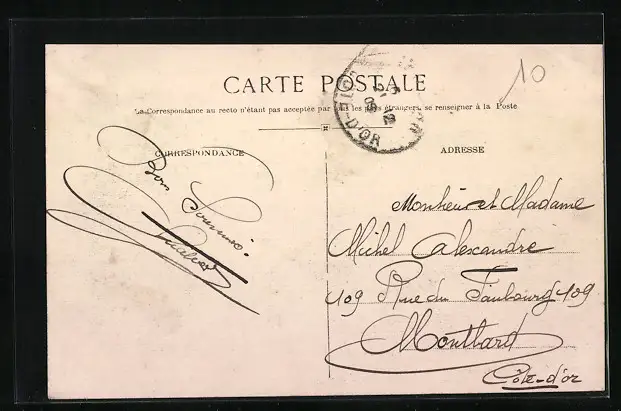 10
CARTE POSTALE
La Correspondance au recto n'étant pas acceptée par tous les pays étrangers, se renseigner à la Poste
CÔTE-D'OR
CORRESPONDANCE
ADRESSE
Bon Souvenir
Monsieur et Madame
Michel Alexandre
109 Rue du Faubourg 109
Montbard
Côte-d'or